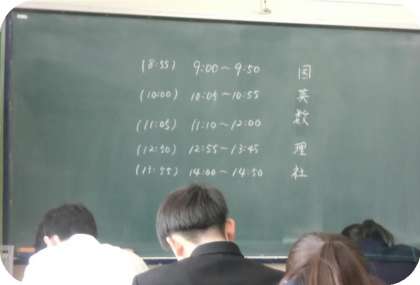 (8:55) 9:00～9:50 国
(10:00) 10:05～10:55 英
(11:05) 11:10～12:00 数
(12:50) 12:55～13:45 理
(13:55) 14:00～14:50 社